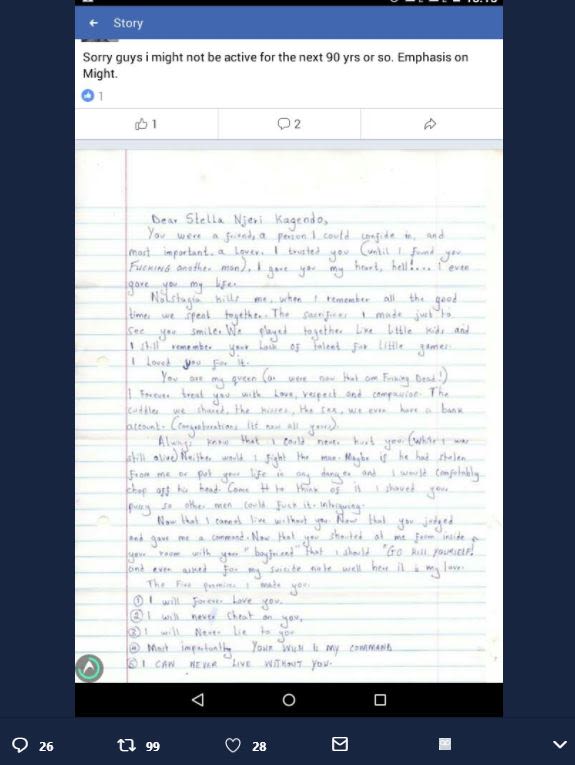 Story
Sorry guys i might not be active for the next 90 yrs or so. Emphasis on
Might.
1
1
2
Dear Stella Njeri Kagendo,
You were a friend, a person I could confide in, and
most important, a Lover. I trusted you (until I found you
FUCKING another man). I gave you my heart, hell!.... I even
gave you my life.
Nolstagia kills me, when I remember all the good
times we spent together. The sacrifices I made just to
see you smile. We played together like little kids and
I still remember your lack of talent for little games.
I Loved you for it.
You are my queen (or were now that am Fucking Dead!)
I Forever treat you with Love, respect and compassion. The
cuddles we shared, the kisses, the sex, we even have a bank
account. (Congratulations its now all yours).
Always know that I could never hurt you (while I was
still alive) Neither would I fight the man. Maybe if he had stolen
from me or put your life in any danger and I would comfortably
chop off his head. Come to think of it I shaved your
pussy so other men could fuck it. Intriguing.
Now that I cannot live without you. Now that you judged
and gave me a command. Now that you shouted at me from inside
your room with your "boyfriend" that I should "GO KILL YOURSELF!
and even asked for my suicide note well here it is my love.
The Five promises I made you.
① I will forever Love you.
② I will never Cheat on you,
③ I will Never Lie to you
④ Most importantly YOUR WISH IS MY COMMAND
⑤ I CAN NEVER LIVE WITHOUT YOU.
26
99
28